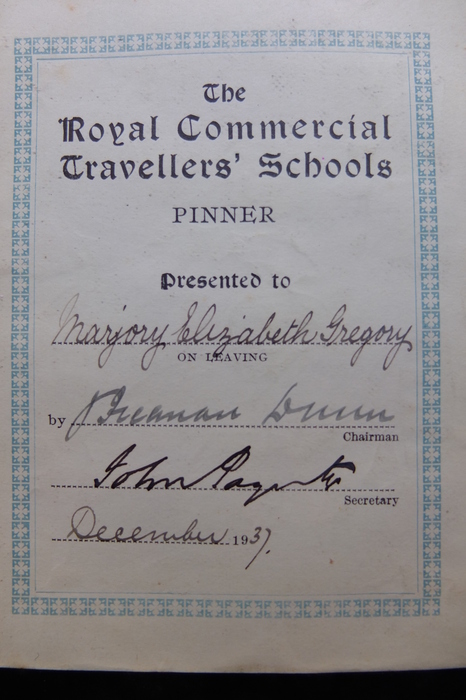 The
Royal Commercial
Travellers' Schools
PINNER
Presented to
Marjory Elizabeth Gregory
ON LEAVING
by
Chairman
John
Secretary
December 1937.